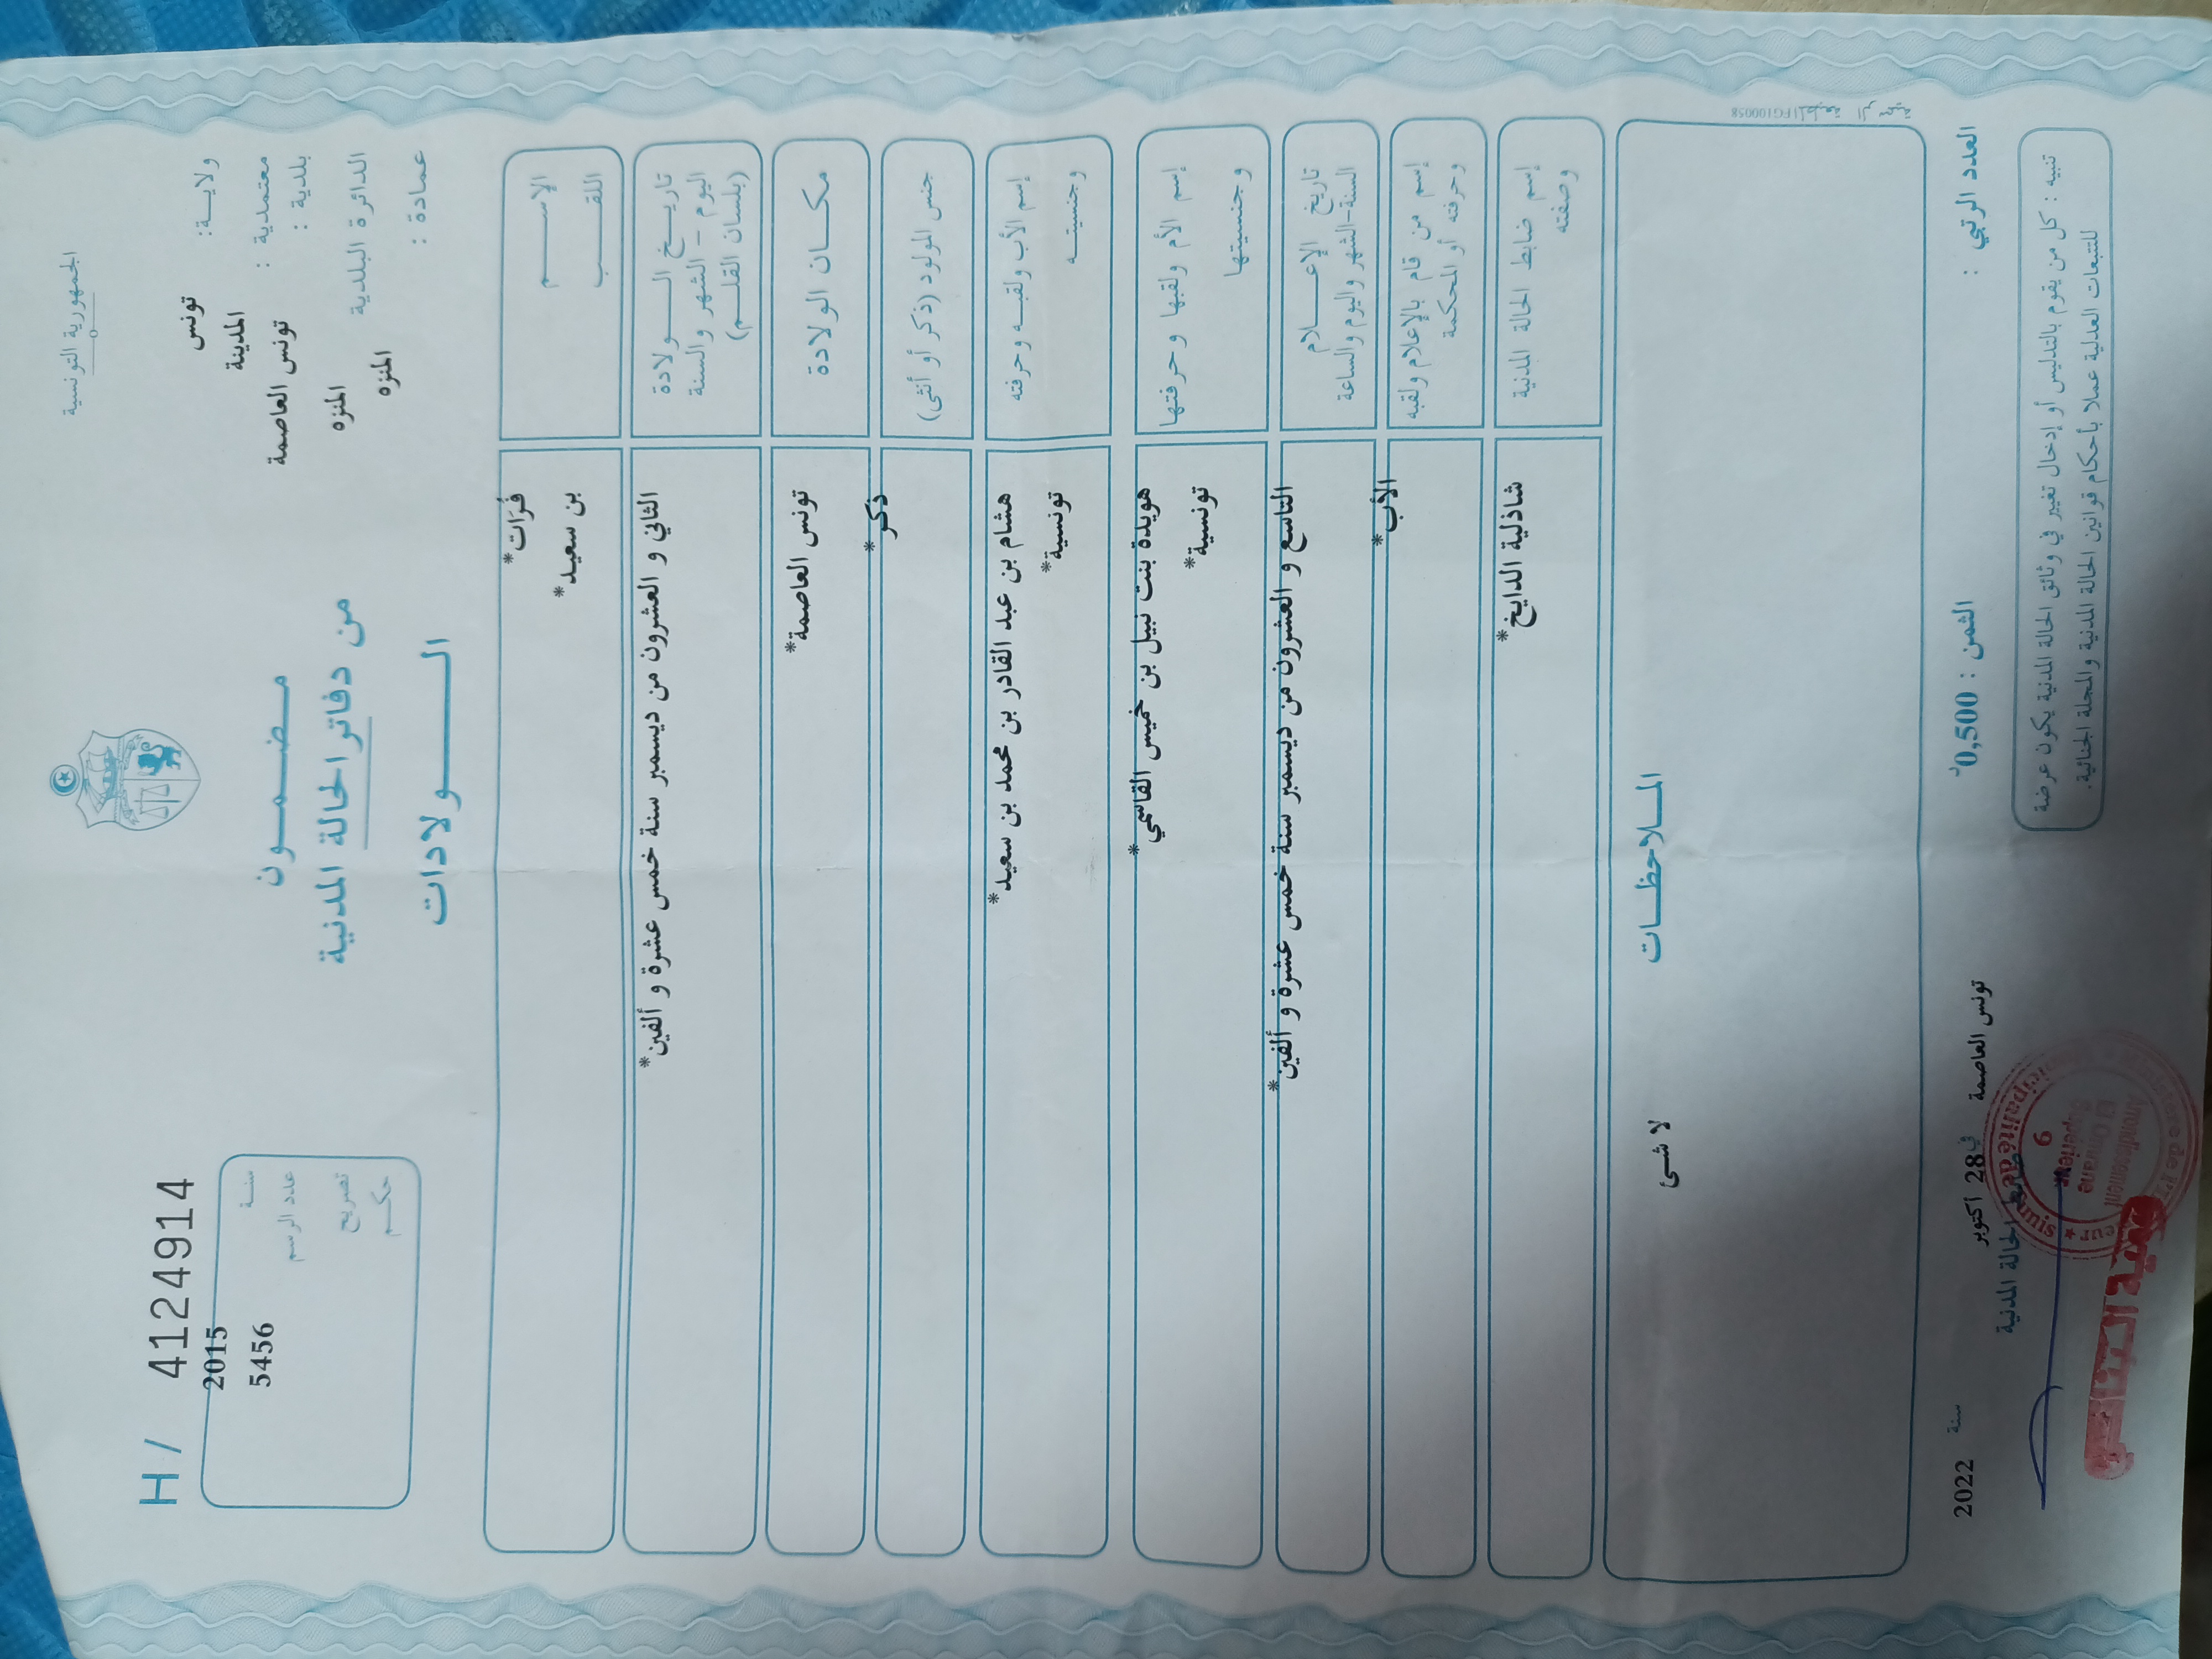 الجمهورية التونسية
ولاية: تونس
معتمدية : المدينة
بلدية : تونس العاصمة
الدائرة البلدية المنزه
عمادة : المنزه
مضمون
من دفاتر الحالة المدنية
الولادات
H/ 4124914
سنة 2015
عدد الرسم 5456
تصريح
حكم
الإسم فُرَات*
اللقب بن سعيد*
تاريخ الولادة
اليوم - الشهر والسنة
(بلسان القلم)
الثاني و العشرون من ديسمبر سنة خمس عشرة و ألفين*
مكان الولادة تونس العاصمة*
جنس المولود (ذكر أو أنثى) ذكر*
إسم الأب ولقبه وحرفته هشام بن عبد القادر بن محمد بن سعيد*
وجنسيته تونسية*
إسم الأم ولقبها وحرفتها هويدة بنت نبيل بن خميس القاسمي*
وجنسيتها تونسية*
تاريخ الإعلام
السنة-الشهر واليوم والساعة
التاسع و العشرون من ديسمبر سنة خمس عشرة و ألفين*
إسم من قام بالإعلام ولقبه
وحرفته أو المحكمة
الأب*
إسم ضابط الحالة المدنية شاذلية الدايخ*
وصفته
الملاحظات
لا شئ
FG100058
العدد الرتبي :
الثمن : 0,500د
تونس العاصمة في 28 اكتوبر سنة 2022
ضابط الحالة المدنية
Municipalité de Tunis
Arrondissement
El Omrane
Supérieur
9
تنبيه : كل من يقوم بالتدليس أو إدخال تغيير في وثائق الحالة المدنية يكون عرضة
للتتبعات العدلية عملا بأحكام قوانين الحالة المدنية والمجلة الجنائية.